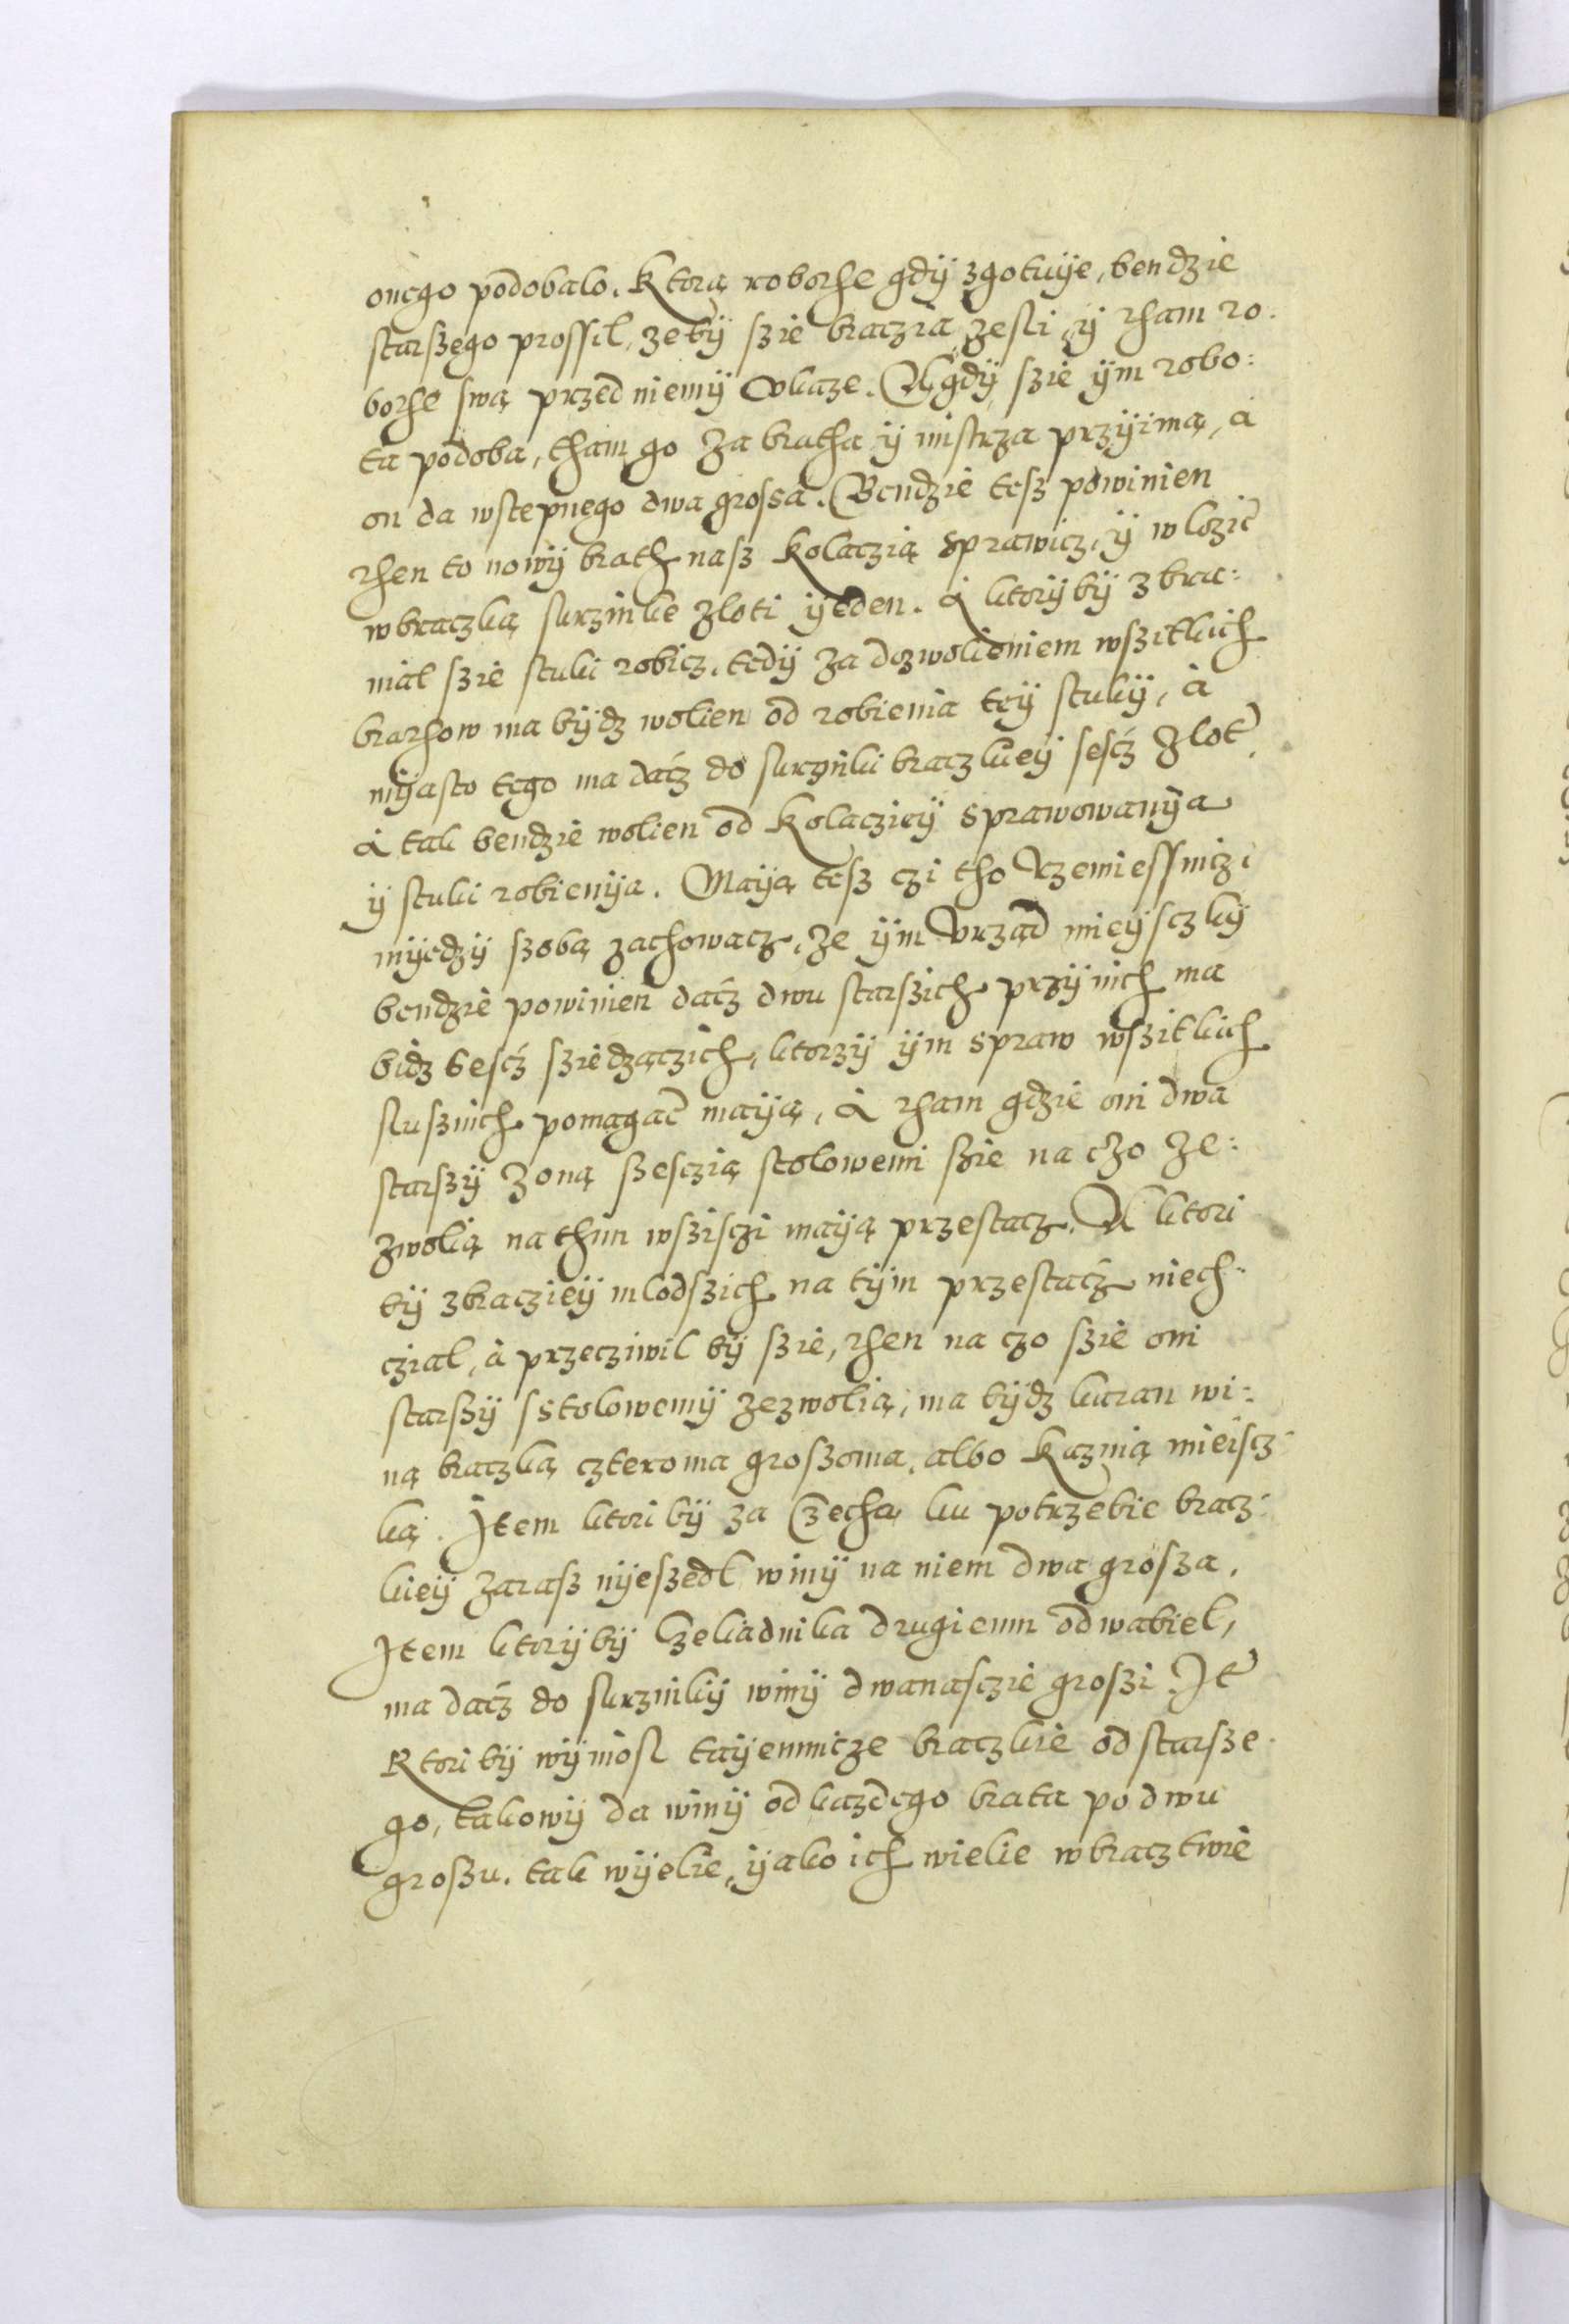 onego podobalo. Ktorą robothe gdÿ zgotuÿe, bendzie
starszego prossil, zebÿ szie braczia zesli ÿ tham ro:
bothe swą przed niemÿ vkaze. A gdÿ szie ÿm robo:
ta podoba, tham go za bratha ÿ mistrza przÿimą, à
on da wstepnego dwa grossa. Bendzie tesz powinien
then to nowÿ brath nasz Kolaczią sprawicz, ÿ wlozic
w braczką skrzinke zloti ÿeden. A ktorÿ bÿ z bra:
nial szie stuki robicz, tedÿ za dozwolieniem wszitkich
brathow ma bÿdz wolien od robienia teÿ stukÿ, à
mÿasto tego ma dacz do skrzinki braczkieÿ sescz zlot.
A tak bendzie wolien od Kolaczieÿ sprawowanÿa
ÿ stuki robienÿa. Maÿą tesz czi tho Rzemiessniczi
mÿedzÿ szobą zachowacz, ze ÿm Vrząd mieÿsczkÿ
bendzie powinien dacz dwu starszich, przÿ nich ma
bidz sescz sziedzączich, ktorzÿ ÿm spraw wszitkich
slusznich pomagac maÿą, A tham gdzie oni dwa
starszÿ z oną szesczią stolowemi szie na czo ze:
zwolią na thim wszisczi maÿą przestacz. A ktori
bÿ z braczieÿ mlodszich na tÿm przestacz niech:
czial, à przecziwil bÿ szie, then na czo szie oni
starszÿ s stolowemÿ zezwolią, ma bÿdz karan wi:
ną braczką czteroma groszoma, albo Kaznią mieiscz:
ką. Item ktori bÿ za Czechą ku potrzebie bracz:
kieÿ zarasz nÿeszedl winÿ na niem dwa grosza.
Item ktorÿ bÿ Czeliadnika drugiemu odwabiel,
ma dacz do skrzinkÿ winÿ dwanasczie groszi. It
Ktori bÿ wÿniosl taÿemnicze braczkie od starsze
go, takowÿ da winÿ od kazdego brata po dwu
groszu. tak wÿelie, ÿako ich wielie w bracztwie